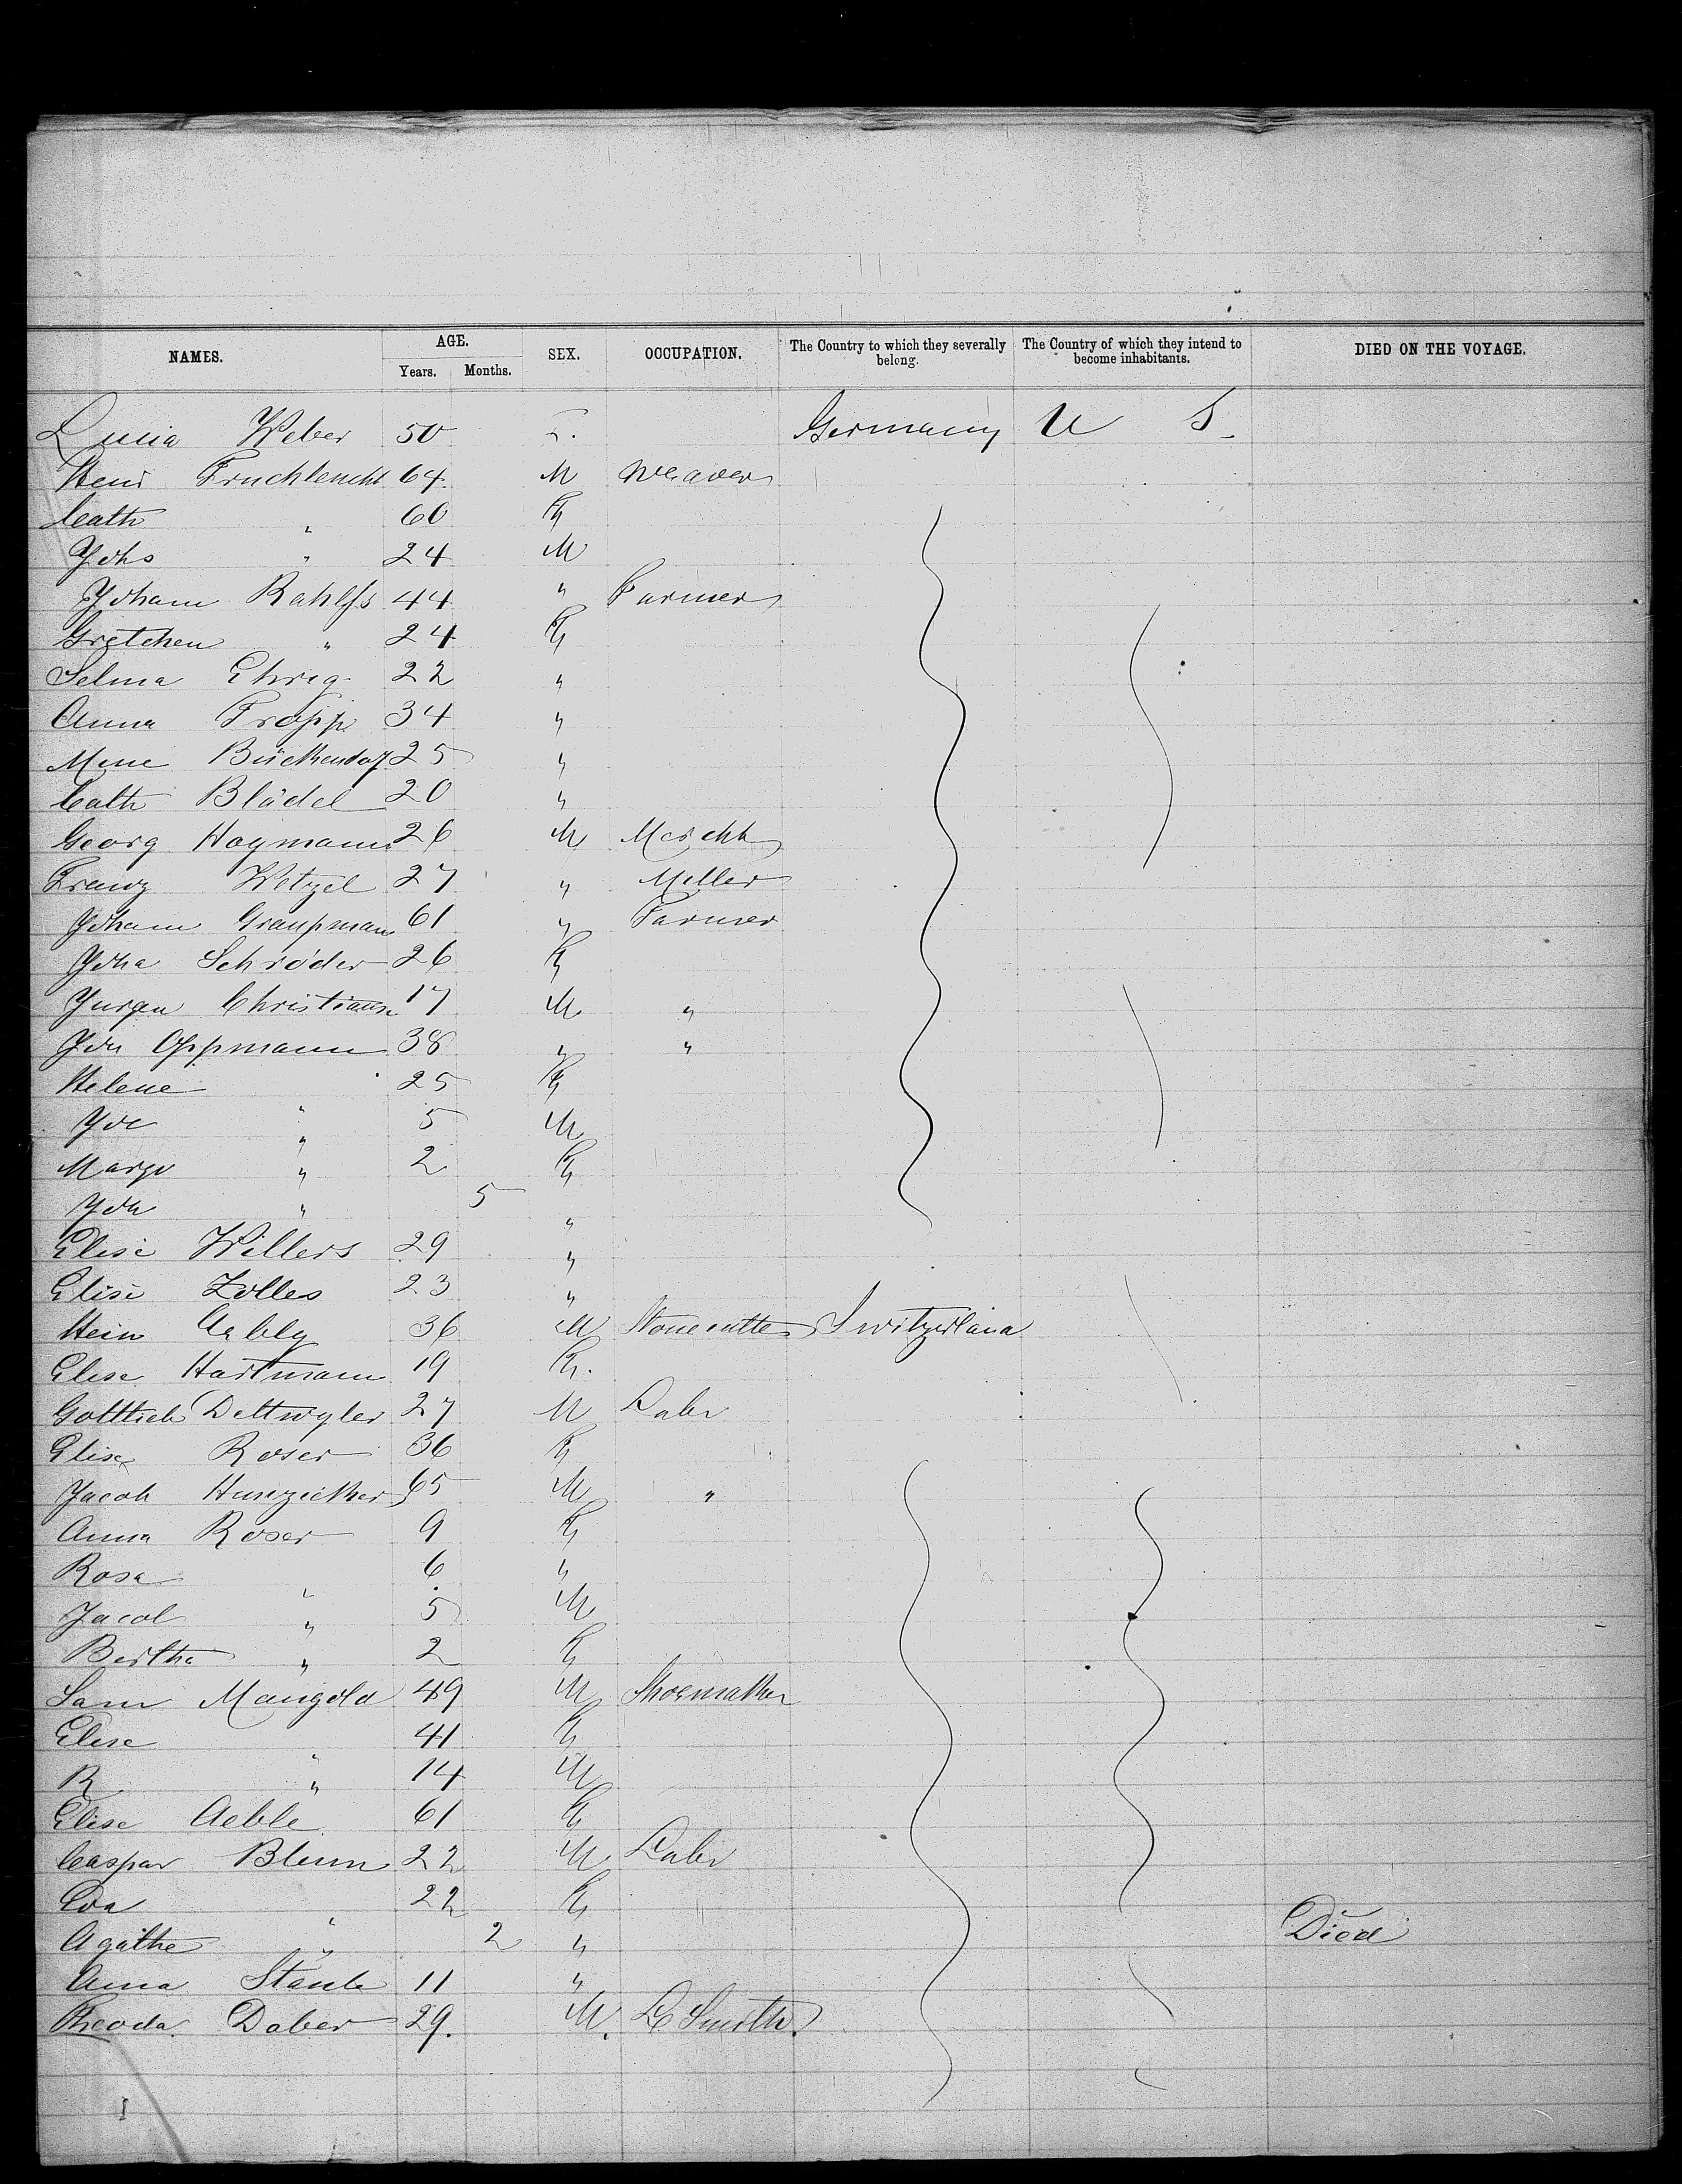 NAMES. AGE. Years. Months. SEX. OCCUPATION. The Country to which they severally belong. The Country of which they intend to become inhabitants. DIED ON THE VOYAGE.
Lucia Weber 50 F. Germany U S
Heni Fruchtenicht 64 M Weaver
Cath " 60 F
Johs " 24 M
Joham Rahlfs 44 " Farmer
Gretchen " 24 F
Selma Ehrig 22 "
Anna Tropp 34 "
Mene 25 "
Cath Blödel 20 "
Georg Hogmann 26 M Mercht
Franz Wetzel 27 " Miller
Joham Graupmann 61 " Farmer
Joha Schröder 26 F
Jurgen Christiansn 17 M "
Oppmann 38 " "
Helene " 25 F
" 5 M
Marga " 2 F
" 5 "
Elise Willers 29 "
Elise Zolles 23 "
Hein Aebly 36 M Stonecutter Switzerland
Elise Hartmann 19 F.
Gottlieb Dettwyler 27 M Labr
Elise Roser 36 F
Jacob Hunzicker 65 M "
Anna Roser 9 F
Rosa " 6 "
Jacob " 5 M
Bertha " 2 F
Sam Mangold 49 M Shoemaker
Elise " 41 F
R " 14 M
Elise Aeble 61 F
Caspar Blum 22 M Labr
Eva " 22 F
Agathe " 2 " Died
Anna Staub 11 "
Theoda Daber 29. M. L. Smith.